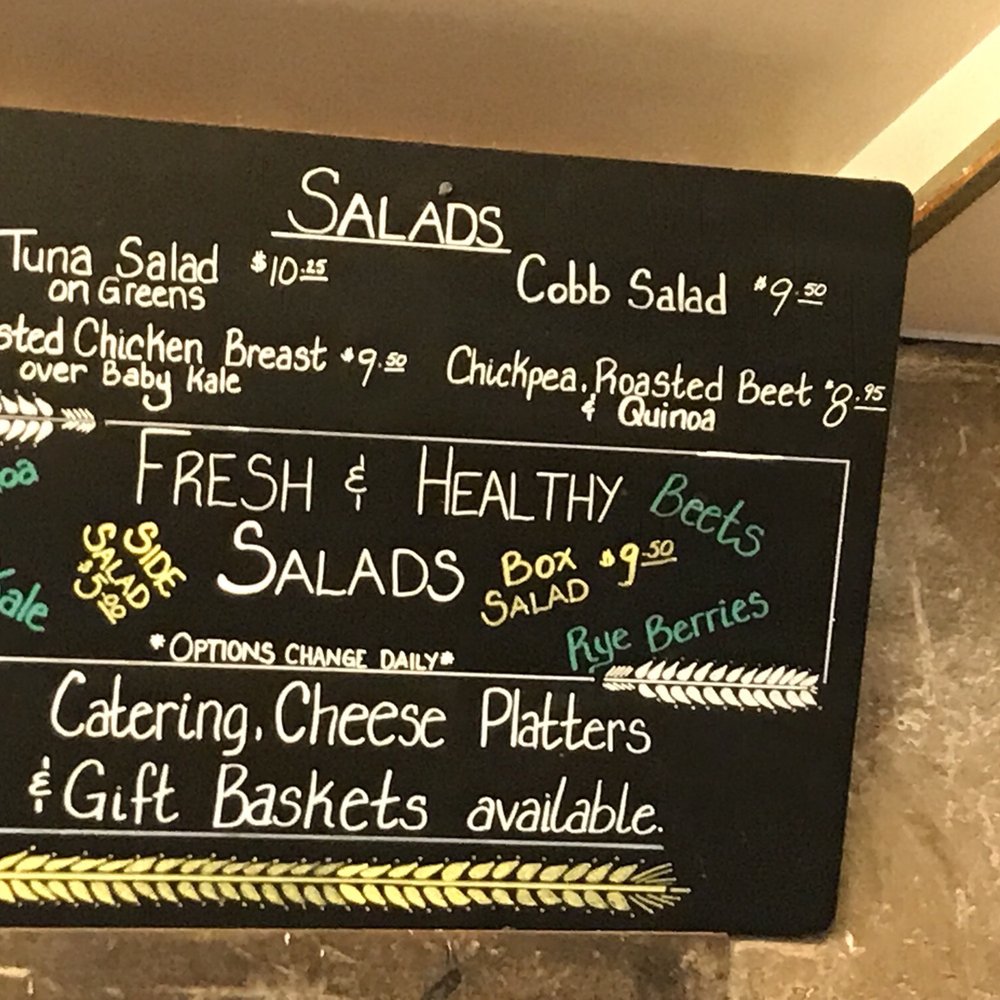 SALADS
Tuna Salad $10.25
on Greens
Cobb Salad $9.50
sted Chicken Breast $9.50
over Baby Kale
Chickpea, Roasted Beet $8.95
& Quinoa
oa
FRESH & HEALTHY
Beets
SALADS
SIDE
SALAD
BOX $9.50
SALAD
ale
Rye Berries
*OPTIONS CHANGE DAILY*
Catering, Cheese Platters
& Gift Baskets available.